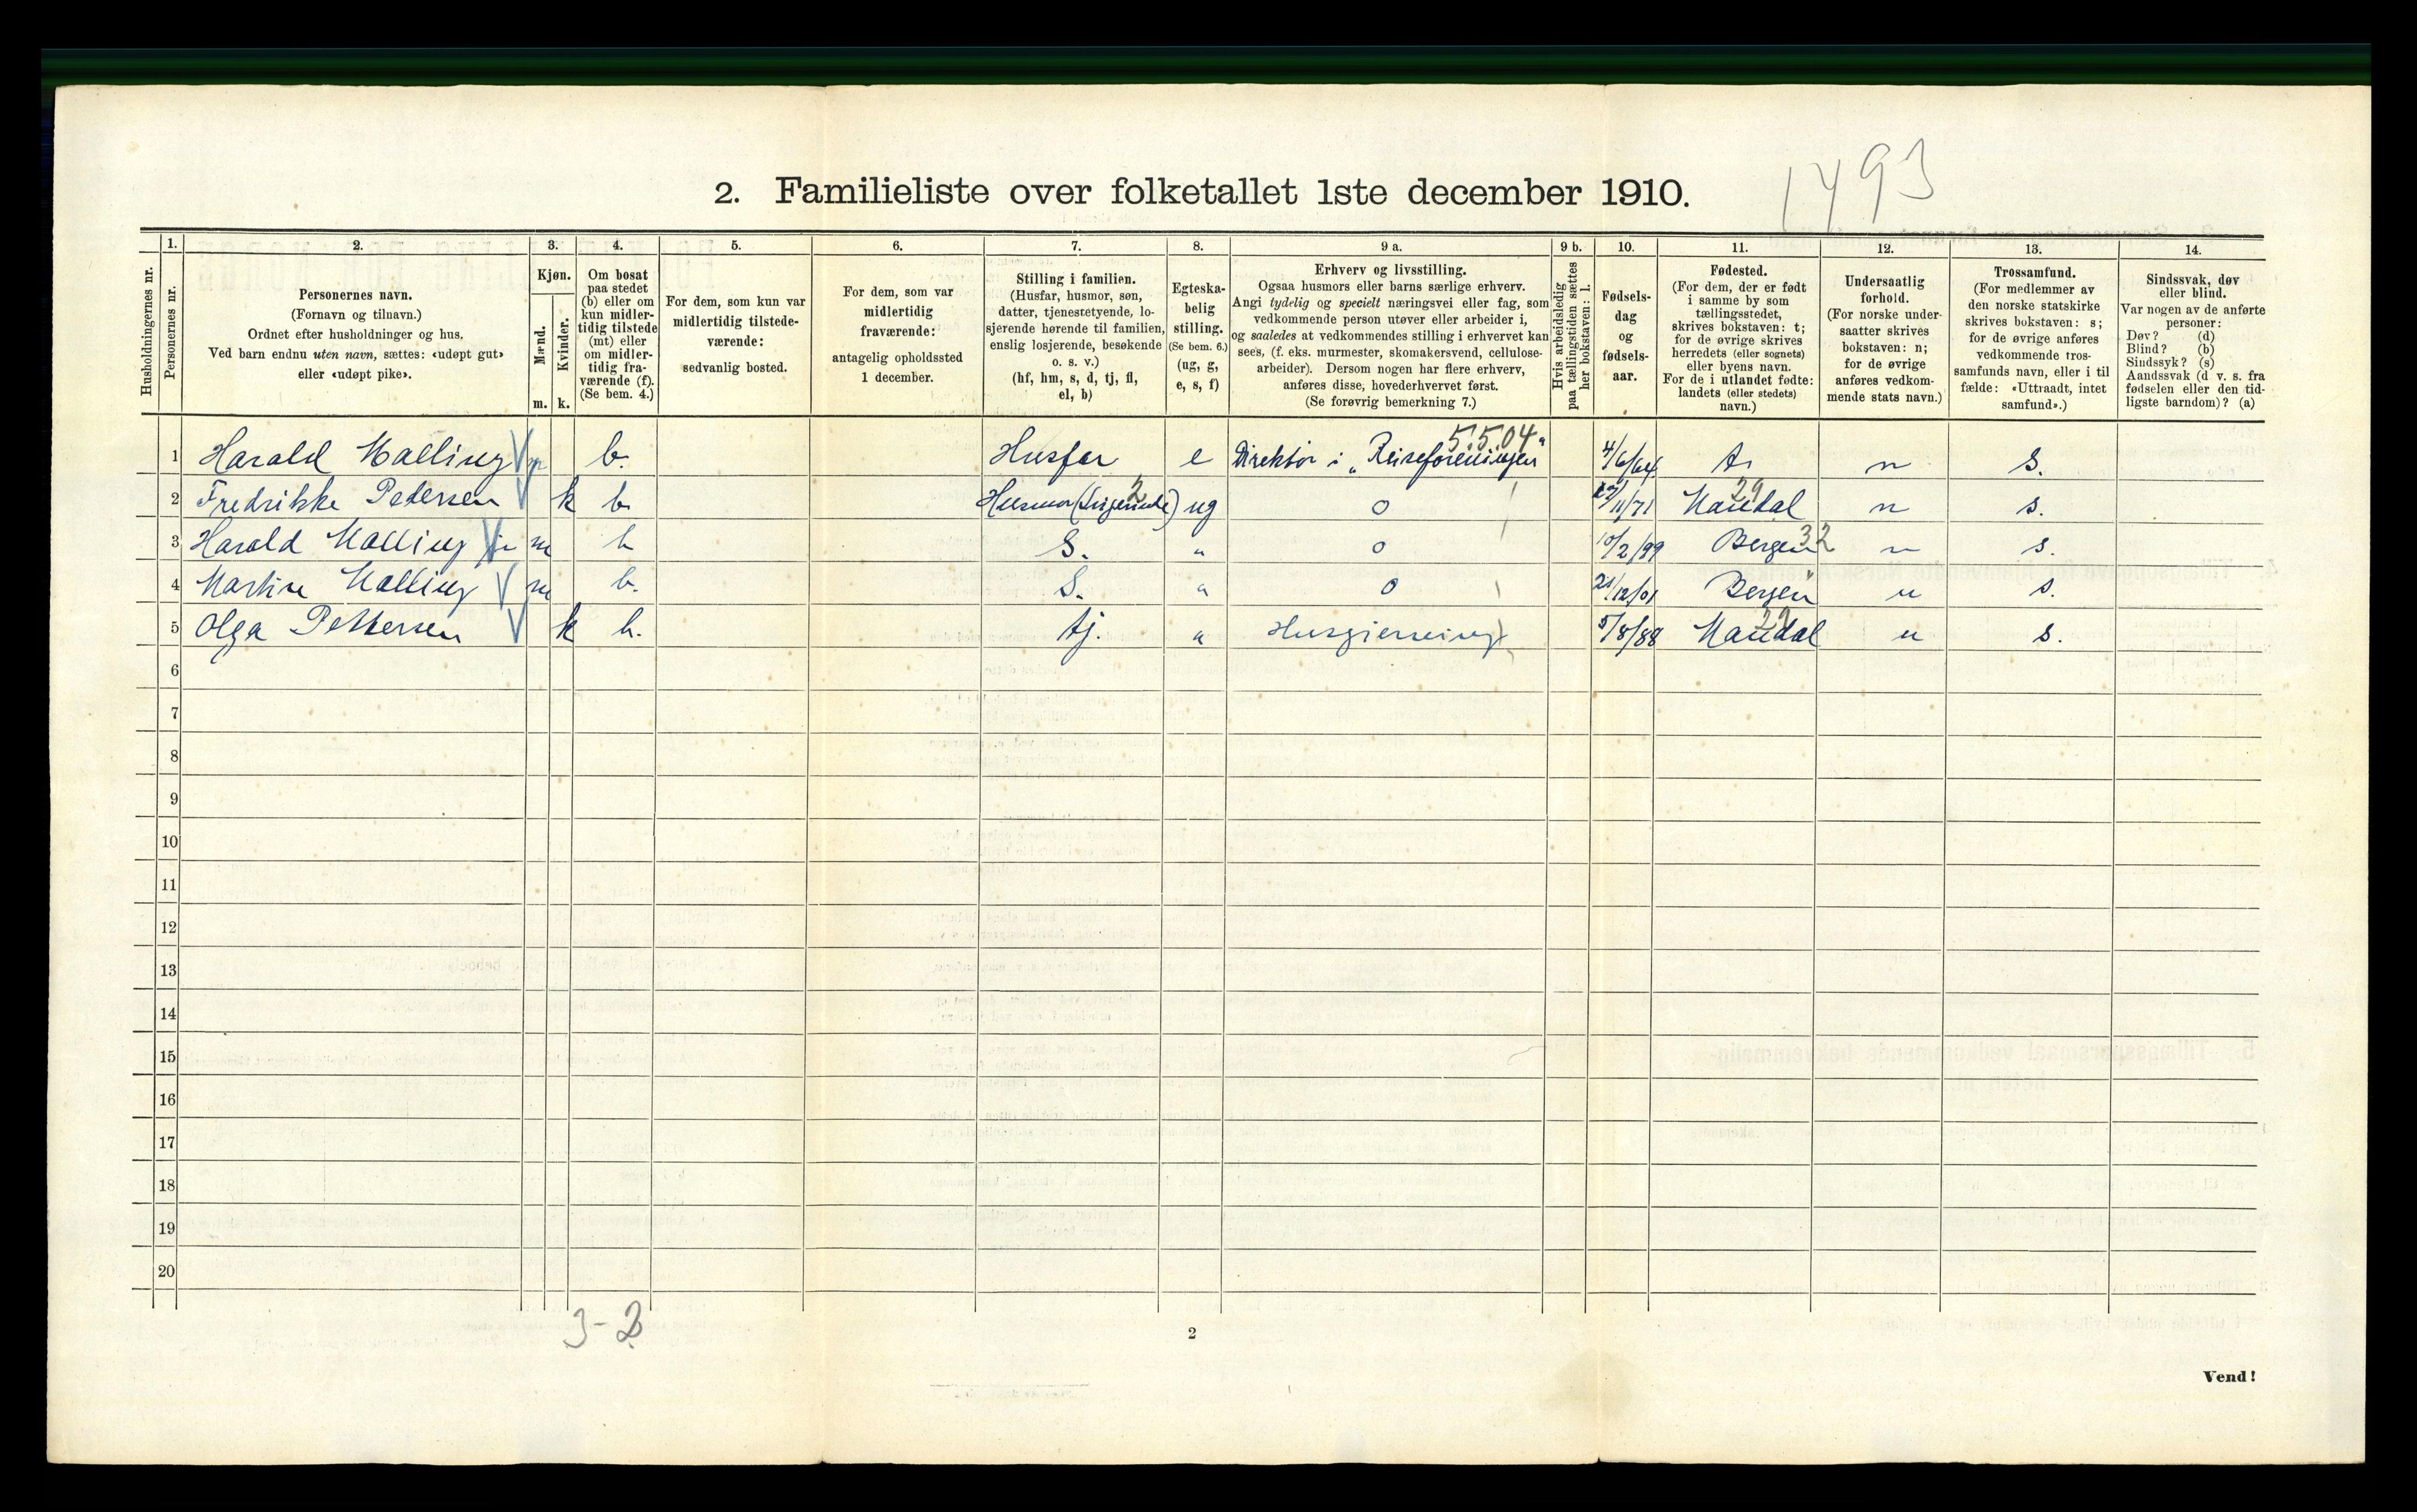 1493
2. Familieliste over folketallet 1ste december 1910.
Husholdningernes nr.
1.
Personernes nr.
2.
Personernes navn.
(Fornavn og tilnavn.)
Ordnet efter husholdninger og hus.
Ved barn endnu uten navn, sættes: «udøpt gut»
eller «udøpt pike».
3.
Kjøn.
Mænd.
Kvinder.
m. k.
4.
Om bosat
paa stedet
(b) eller om
kun midler-
tidig tilstede
(mt) eller
om midler-
tidig fra-
værende (f).
(Se bem. 4.)
5.
For dem, som kun var
midlertidig tilstede-
værende:
sedvanlig bosted.
6.
For dem, som var
midlertidig
fraværende:
antagelig opholdssted
1 december.
7.
Stilling i familien.
(Husfar, husmor, søn,
datter, tjenestetyende, lo-
sjerende hørende til familien,
enslig losjerende, besøkende
o. s. v.)
(hf, hm, s, d, tj, fl,
el, b)
8.
Egteska-
belig
stilling.
(Se bem. 6.)
(ug, g,
e, s, f)
9 a.
Erhverv og livsstilling.
Ogsaa husmors eller barns særlige erhverv.
Angi tydelig og specielt næringsvei eller fag, som
vedkommende person utøver eller arbeider i,
og saaledes at vedkommendes stilling i erhvervet kan
sees, (f. eks. murmester, skomakersvend, cellulose-
arbeider). Dersom nogen har flere erhverv,
anføres disse, hovederhvervet først.
(Se forøvrig bemerkning 7.)
9 b.
Hvis arbeidsledig
paa tællingstiden sættes
her bokstaven: l.
10.
Fødsels-
dag
og
fødsels-
aar.
11.
Fødested.
(For dem, der er født
i samme by som
tællingsstedet,
skrives bokstaven: t;
for de øvrige skrives
herredets (eller sognets)
eller byens navn.
For de i utlandet fødte:
landets (eller stedets)
navn.)
12.
Undersaatlig
forhold.
(For norske under-
saatter skrives
bokstaven: n;
for de øvrige
anføres vedkom-
mende stats navn.)
13.
Trossamfund.
(For medlemmer av
den norske statskirke
skrives bokstaven: s;
for de øvrige anføres
vedkommende tros-
samfunds navn, eller i til
fælde: «Uttraadt, intet
samfund».)
14.
Sindssvak, døv
eller blind.
Var nogen av de anførte
personer:
Døv? (d)
Blind? (b)
Sindssyk? (s)
Aandssvak (d v. s. fra
fødselen eller den tid-
ligste barndom)? (a)
5.5.04
1 Harald Malling m b. Husfar e Direktør i „Reiseforeningen" 4/6/64 n s.
2 Fredrikke Pedersen k b. Husmor ug 0 /11/71 Mandal 29 n s.
3 Harald Malling jr m b S. „ 0 10/2/99 Bergen 32 n s.
4 Martin Malling m b. S. „ 0 21/12/01 Bergen n s.
5 Olga Pettersen k b. tj. „ Husgjerning 5/8/88 Mandal 29 n s.
6
7
8
9
10
11
12
13
14
15
16
17
18
19
20
3-2
2
Vend!